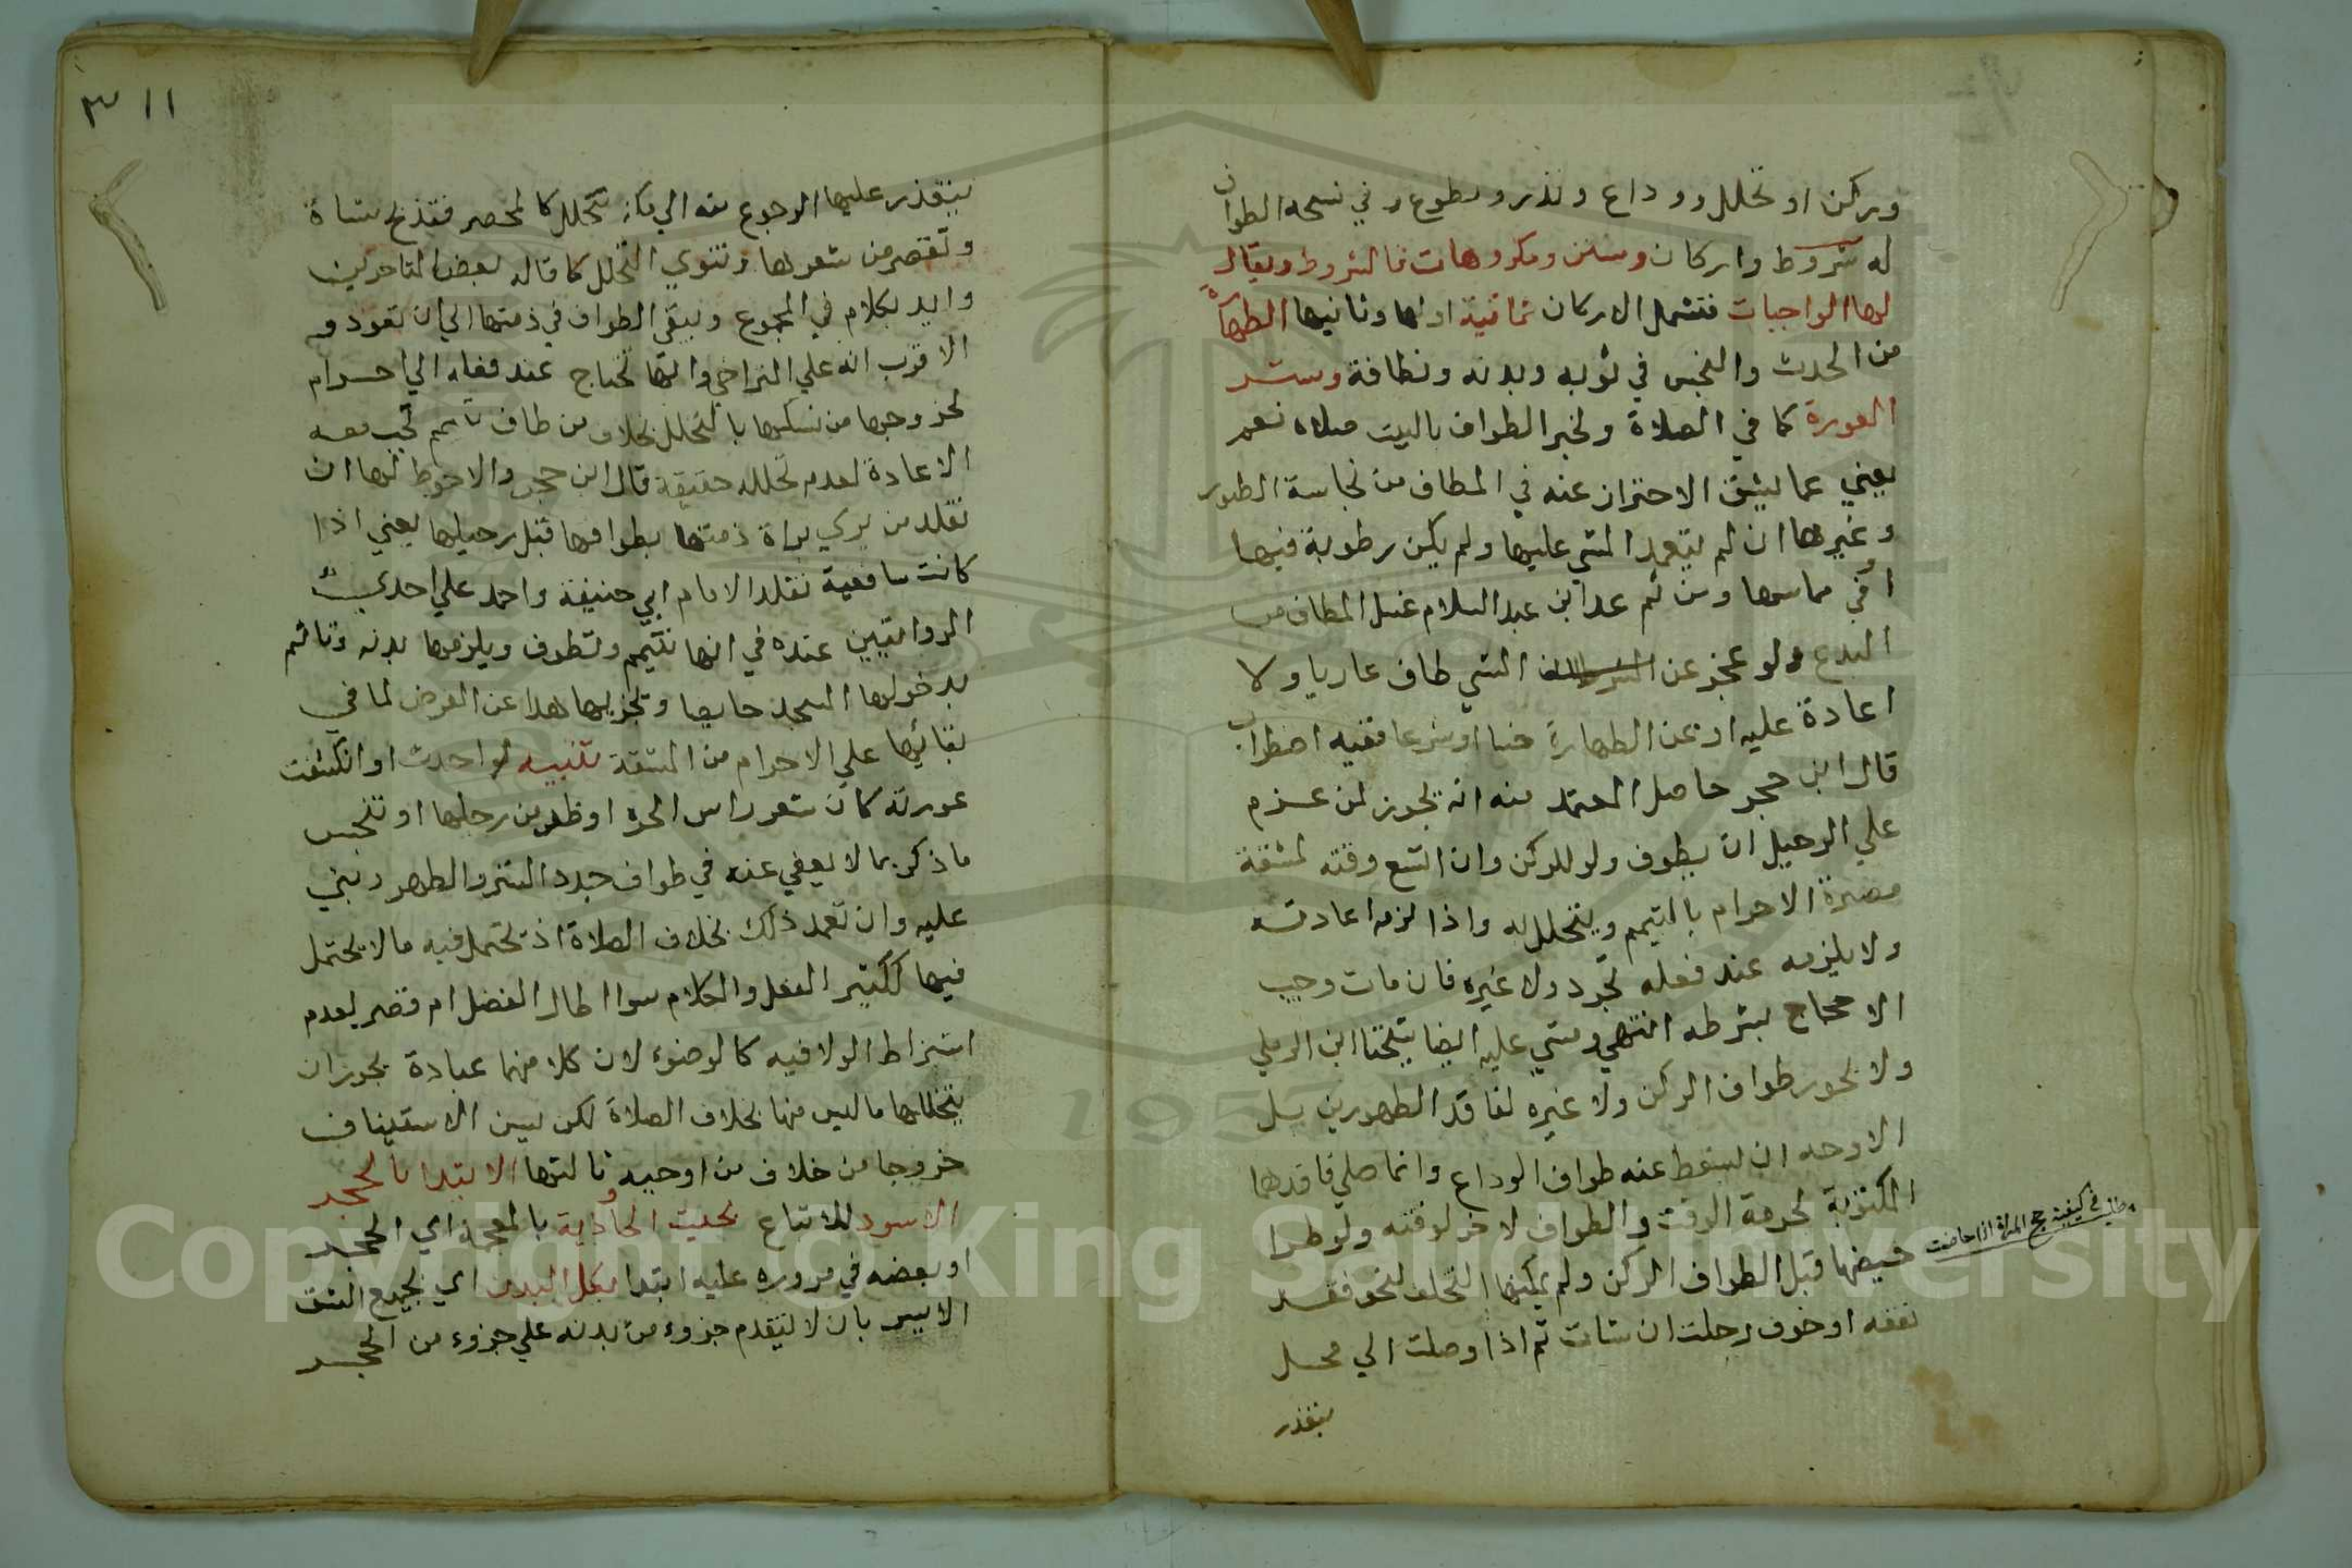 وركن او تحلل ووداع ونذر وتطوع وفي نسخه الطواف
له شروط واركان وسنن ومكروهات فالشروط ويقال
لها الواجبات فتشمل الاركان ثمانية اولها وثانيها الطهارة
من الحدث والنجس في ثوبه وبدنه ونظافة وستر
العورة كما في الصلاة ولخبر الطواف بالبيت صلاة نعم
يعفي عما يشق الاحتراز عنه في المطاف من نجاسة الطيور
وغيرها ان لم يتعمد المشي عليها ولم يكن رطوبة فيها
او في مماسها ومن ثم عد ابن عبد السلام غسل المطاف من
البدع ولو عجز عن الستر طاف عاريا ولا
اعادة عليه او عن الطهارة حسا او شرعا ففيه اضطراب
قال ابن حجر حاصل المعتمد منه انه يجوز لمن عزم
علي الرحيل ان يطوف ولو للركن وان اتسع وقته لمشقة
مصابرة الاحرام بالتيمم ويتحلل به واذا لزمه اعادته
ولا يلزمه عند فعله تجرد ولا غيره فان مات وجب
الاحجاج بشرطه انتهي ومشي عليه ايضا شيخنا ابن الرملي
ولا يجوز طواف الركن ولا غيره لفاقد الطهورين بل
الاوجه ان يسقط عنه طواف الوداع وانما صلي فاقدهما
المكتوبة لحرمة الوقت والطواف لا اخر لوقته ولو طرا
حيضها قبل الطواف الركن ولم يمكنها التخلف لنحو فقد
نفقه او خوف رحلت ان شات ثم اذا وصلت الي محل
يتعذر
مطلب في كيفية حج المراة اذا حاضت
٣ ١١
يتعذر عليها الرجوع منه الي مكة تتحلل كالمحصر فتذبح شاة
وتقصر من شعرها وتنوي التحلل كما قاله بعض المتاخرين
وايد بكلام في المجموع ويبقي الطواف في ذمتها الي ان تعود و
الاقرب انه علي التراخي وانها تحتاج عند فعله الي احرام
لخروجها من نسكها بالتحلل بخلاف من طاف بتيمم تجب معه
الاعادة لعدم تحلله حقيقة قال ابن حجر والاحوط لها ان
تقلد من يري براة ذمتها بطوافها قبل رحيلها يعني اذا
كانت شافعية تقلد الامام ابي حنيفة واحمد علي احدي
الروايتين عنده في انها تتيمم وتطوف ويلزمها بدنه وتاثم
بدخولها المسجد حايضا وتجزيها هذا عن الفرض لما في
بقائها علي الاحرام من المشقة تنبيه لو احدث او انكشفت
عورته كان شعر راس الحرة او ظفر من رجلها او تنجس
ما ذكر بما لا يعفي عنه في طواف جدد الستر والطهر وبني
عليه وان تعمد ذلك بخلاف الصلاة اذ يحتمل فيه ما لا يحتمل
فيها ككثير الفعل والكلام سوا اطال الفصل ام قصر لعدم
اشتراط الولا فيه كالوضوء لان كلا منهما عبادة يجوز ان
يتخللها ما ليس منها بخلاف الصلاة لكن يسن الاستيناف
خروجا من خلاف من اوجبه ثالثها الابتدا بالحجر
الاسود للاتباع بحيث المحاذية بالمعجمة اي الحجر
او بعضه في مروره عليه ابتدا بكل البدن اي بجميع الشق
الايسر بان لا يتقدم جزء من بدنه علي جزء من الحجر
Copyright © King Saud University
1957